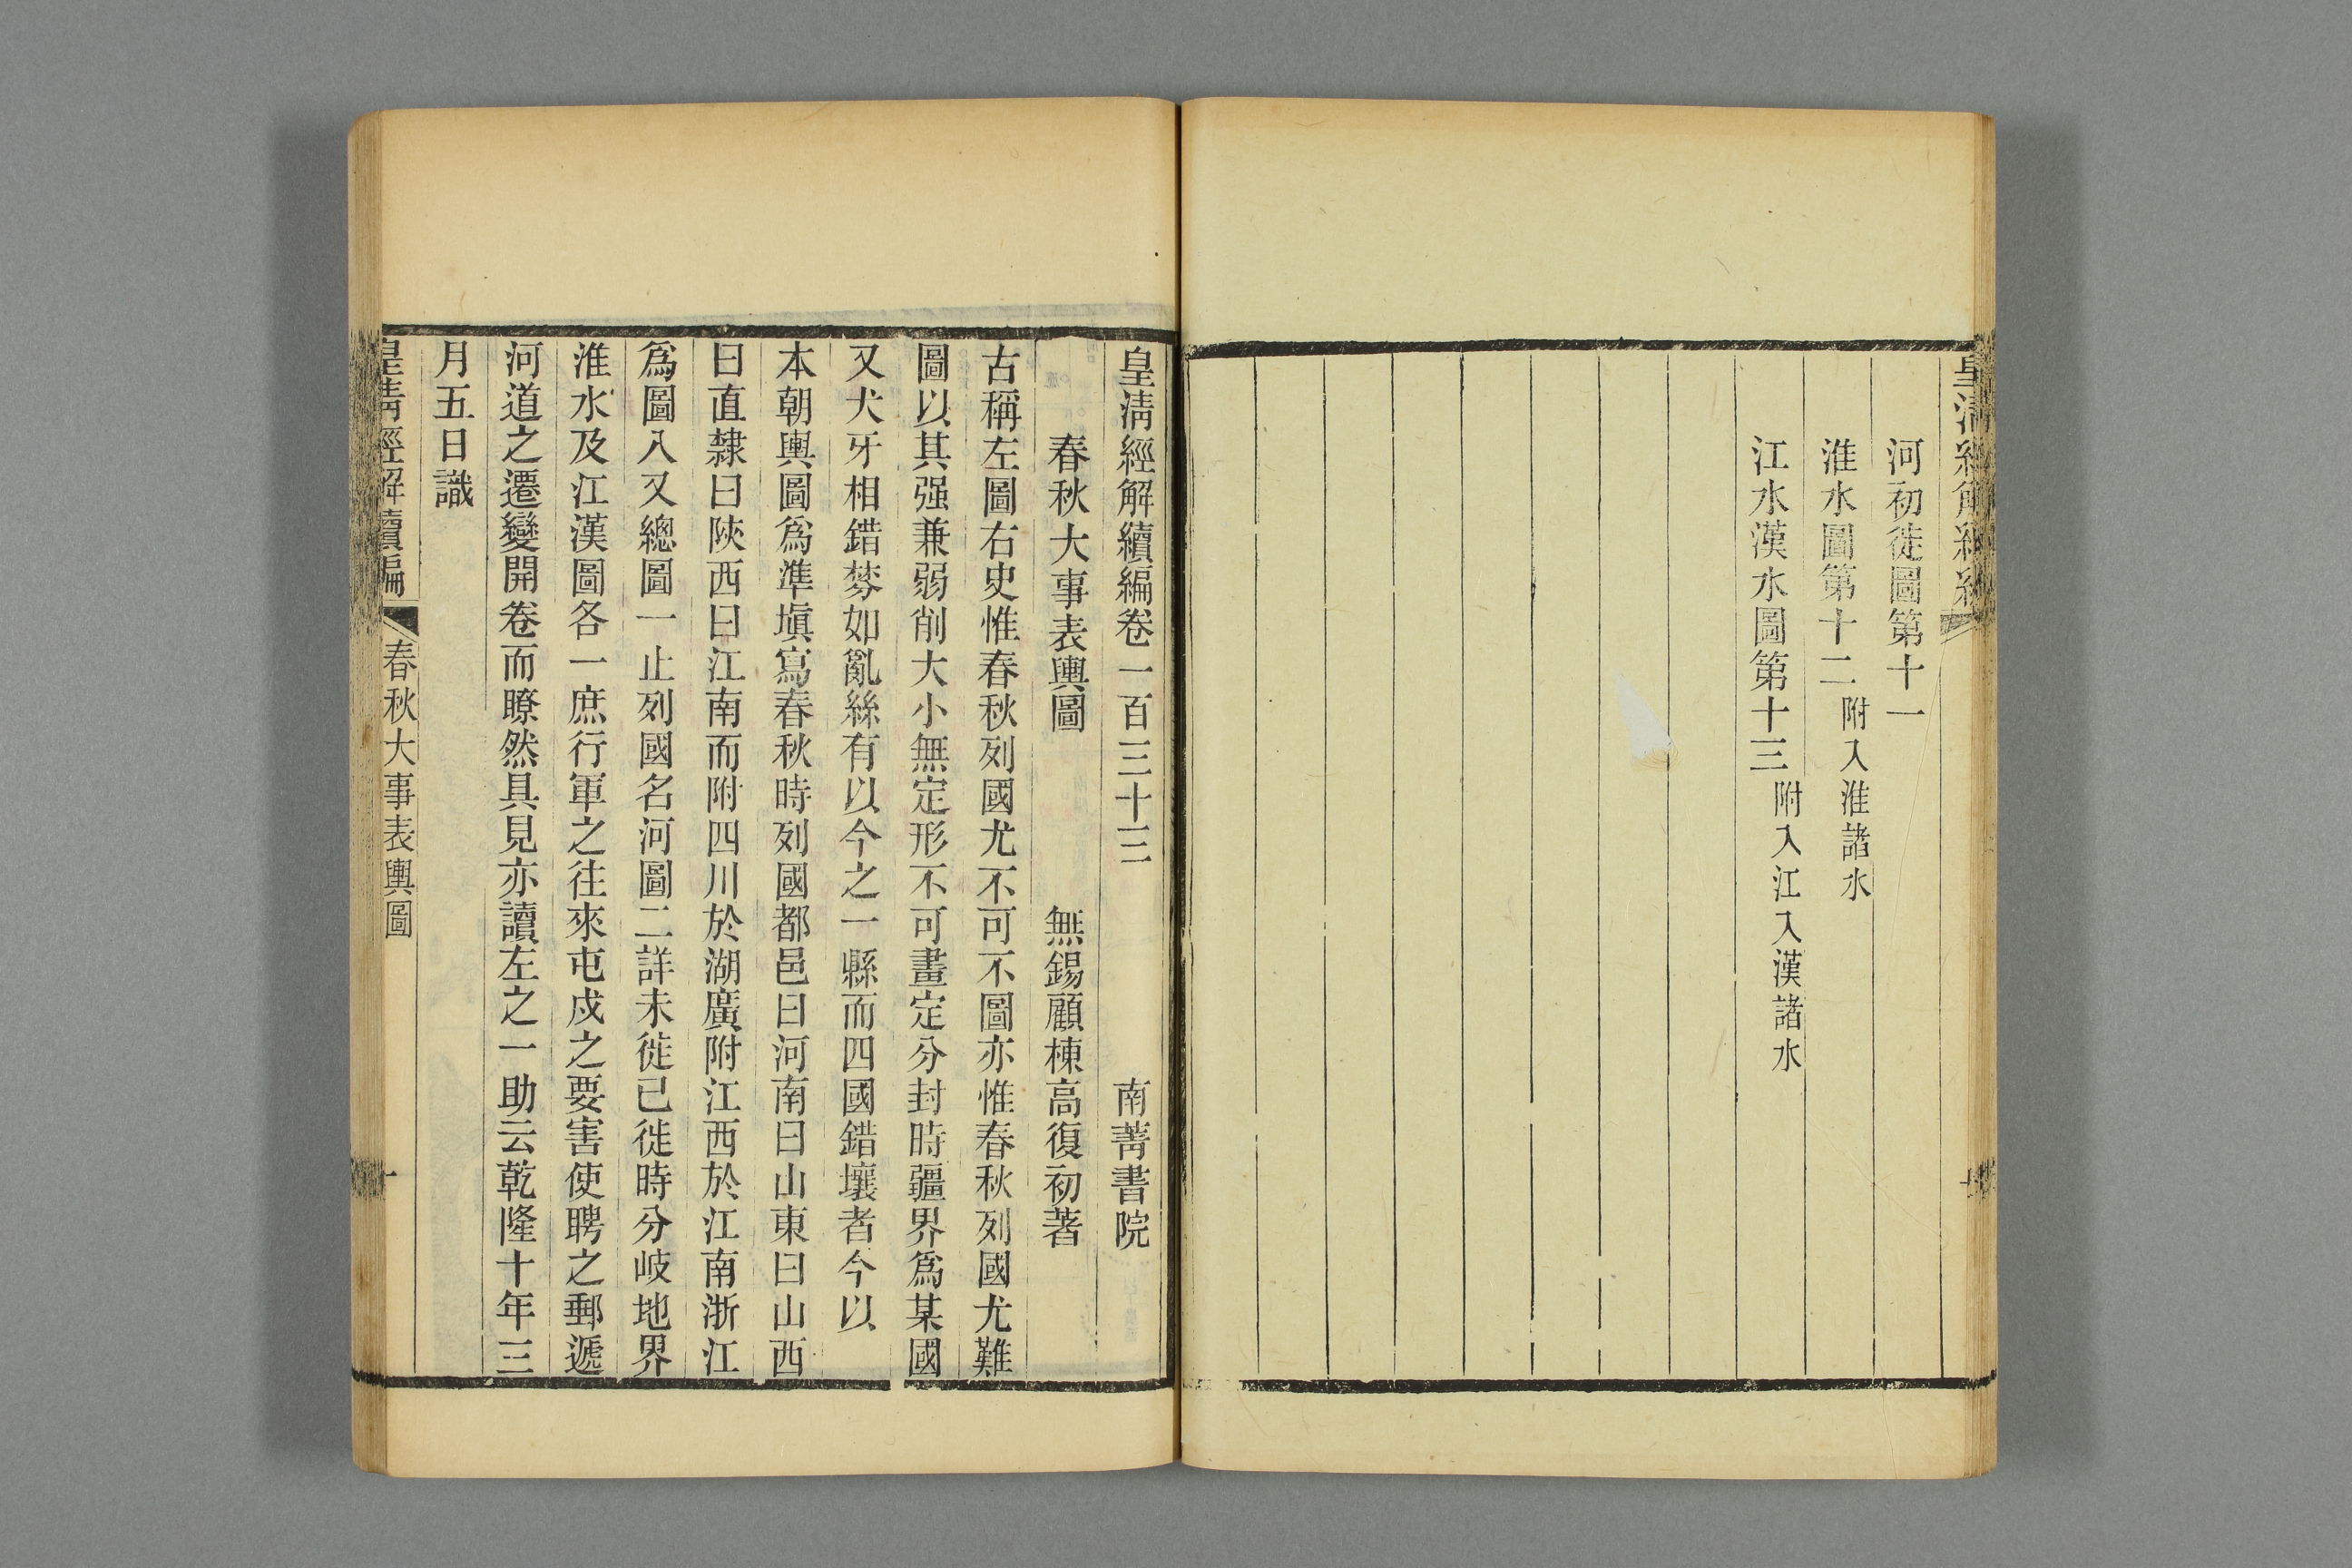 河初徙圖第十一
淮水圖第十二 附入淮諸水
江水漢水圖第十三 附入江入漢諸水
皇清經解續編卷一百三十三 南菁書院
春秋大事表輿圖 無錫顧棟高復初著
古稱左圖右史惟春秋列國尤不可不圖亦惟春秋列國尤難
圖以其强兼弱削大小無定形不可畫定分封時疆界爲某國
又犬牙相錯棼如亂絲有以今之一縣而四國錯壤者今以
本朝輿圖爲準塡寫春秋時列國都邑曰河南曰山東曰山西
曰直隸曰陝西曰江南而附四川於湖廣附江西於江南浙江
爲圖八又總圖一止列國名河圖二詳未徙已徙時分岐地界
淮水及江漢圖各一庶行軍之往來屯戍之要害使聘之郵遞
河道之遷變開卷而瞭然具見亦讀左之一助云乾隆十年三
月五日識
皇清經解續編 春秋大事表輿圖